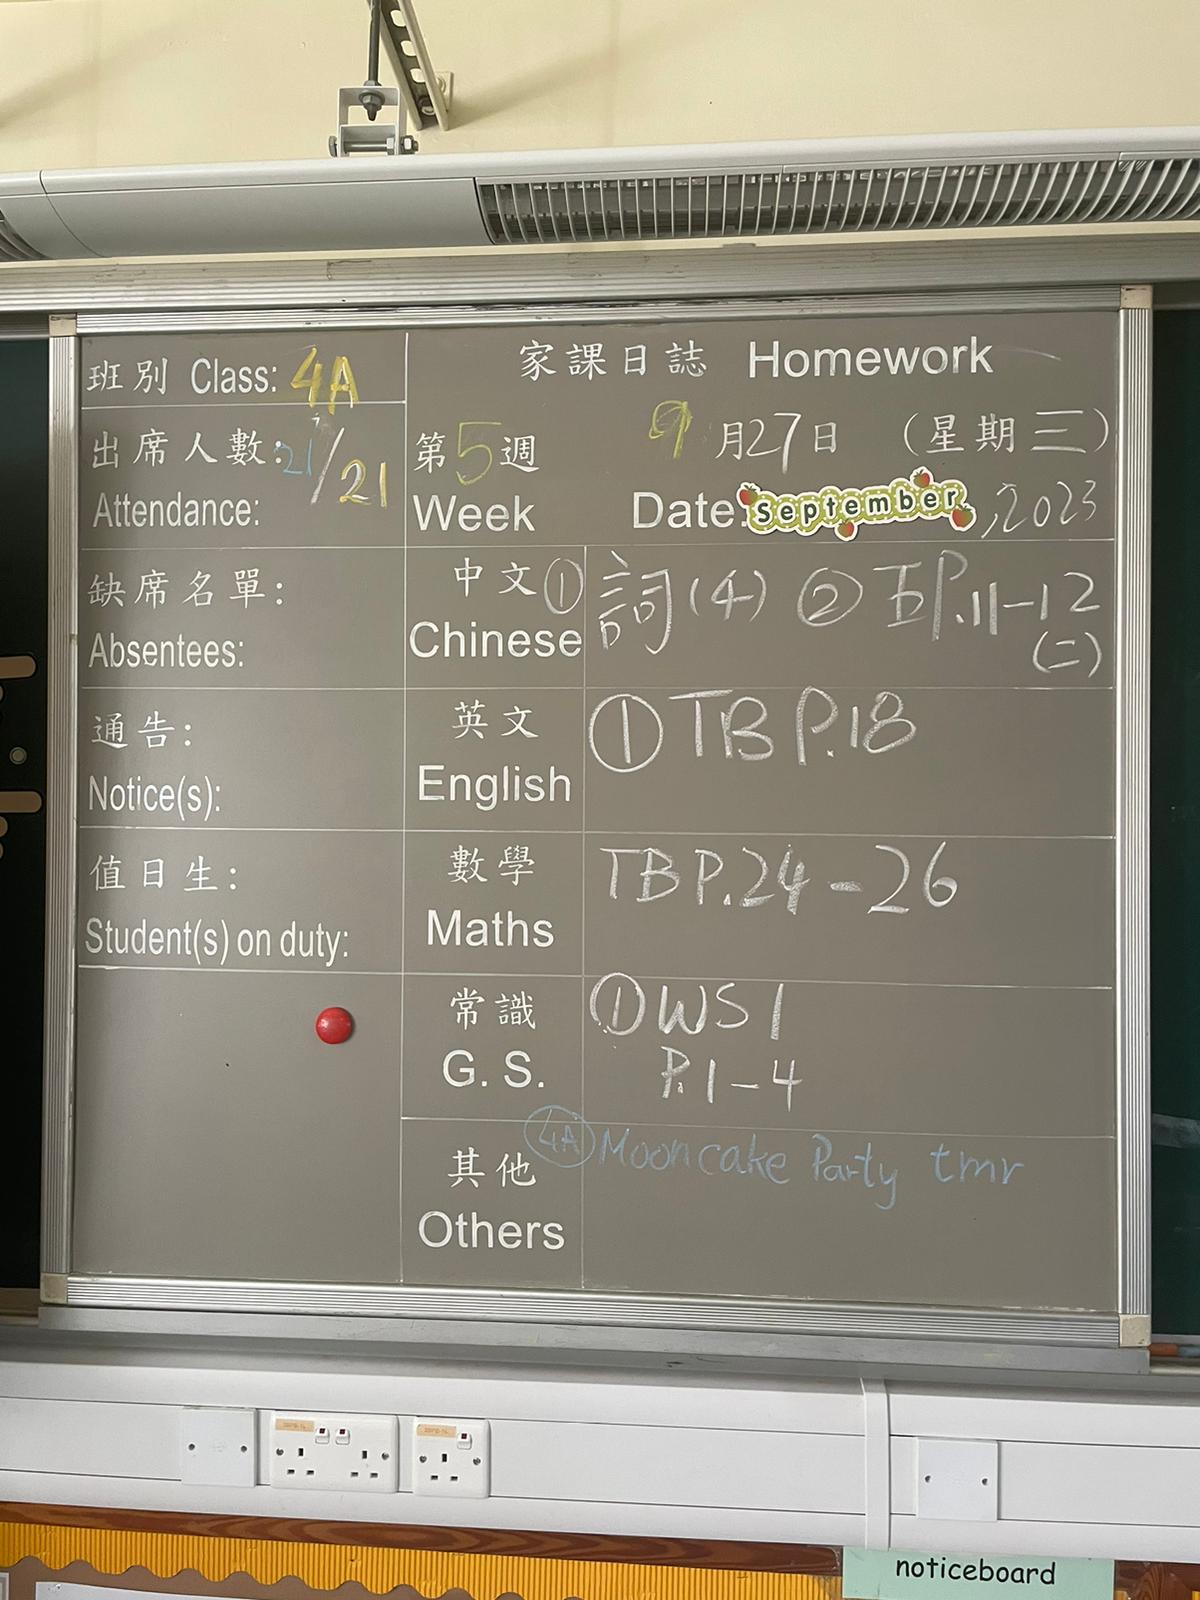 班別 Class: 4A
出席人數: 21/21
Attendance:
缺席名單:
Absentees:
通告:
Notice(s):
值日生:
Student(s) on duty:
家課日誌 Homework
第5週 9月27日 (星期三)
Week Date: September, 2023
中文 ① 詞(4) ② P.11-12
Chinese (二)
英文 ① TB P.18
English
數學 TB P.24-26
Maths
常識 ① WS 1
G. S. P.1-4
4A Mooncake Party tmr
其他
Others
noticeboard